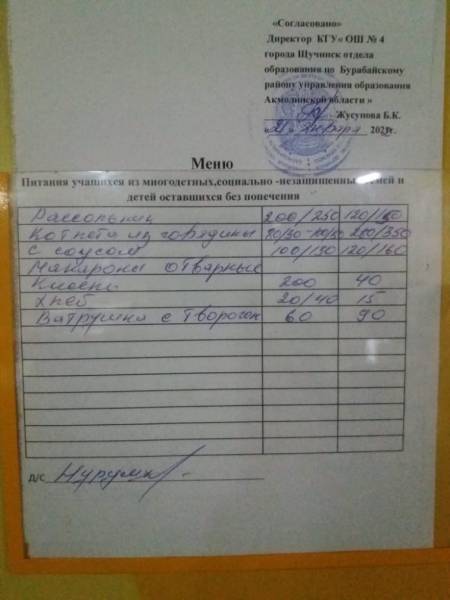 «Согласовано»
Директор КГУ« ОШ № 4
города Щучинск отдела
образования по Бурабайскому
району управления образования
Акмолинской области »
Жусупова Б.К.
января 202 г.
Меню
Питания учащихся из многодетных,социально -незащищенных семей и
детей оставшихся без попечения
Рассольник 200/250 120/160
Котлета из говядины 280/350
с соусом 100/130 120/160
Макароны отварные
Кисель 200 40
Хлеб 20/40 15
Ватрушка с творогом 60 90
Д/С